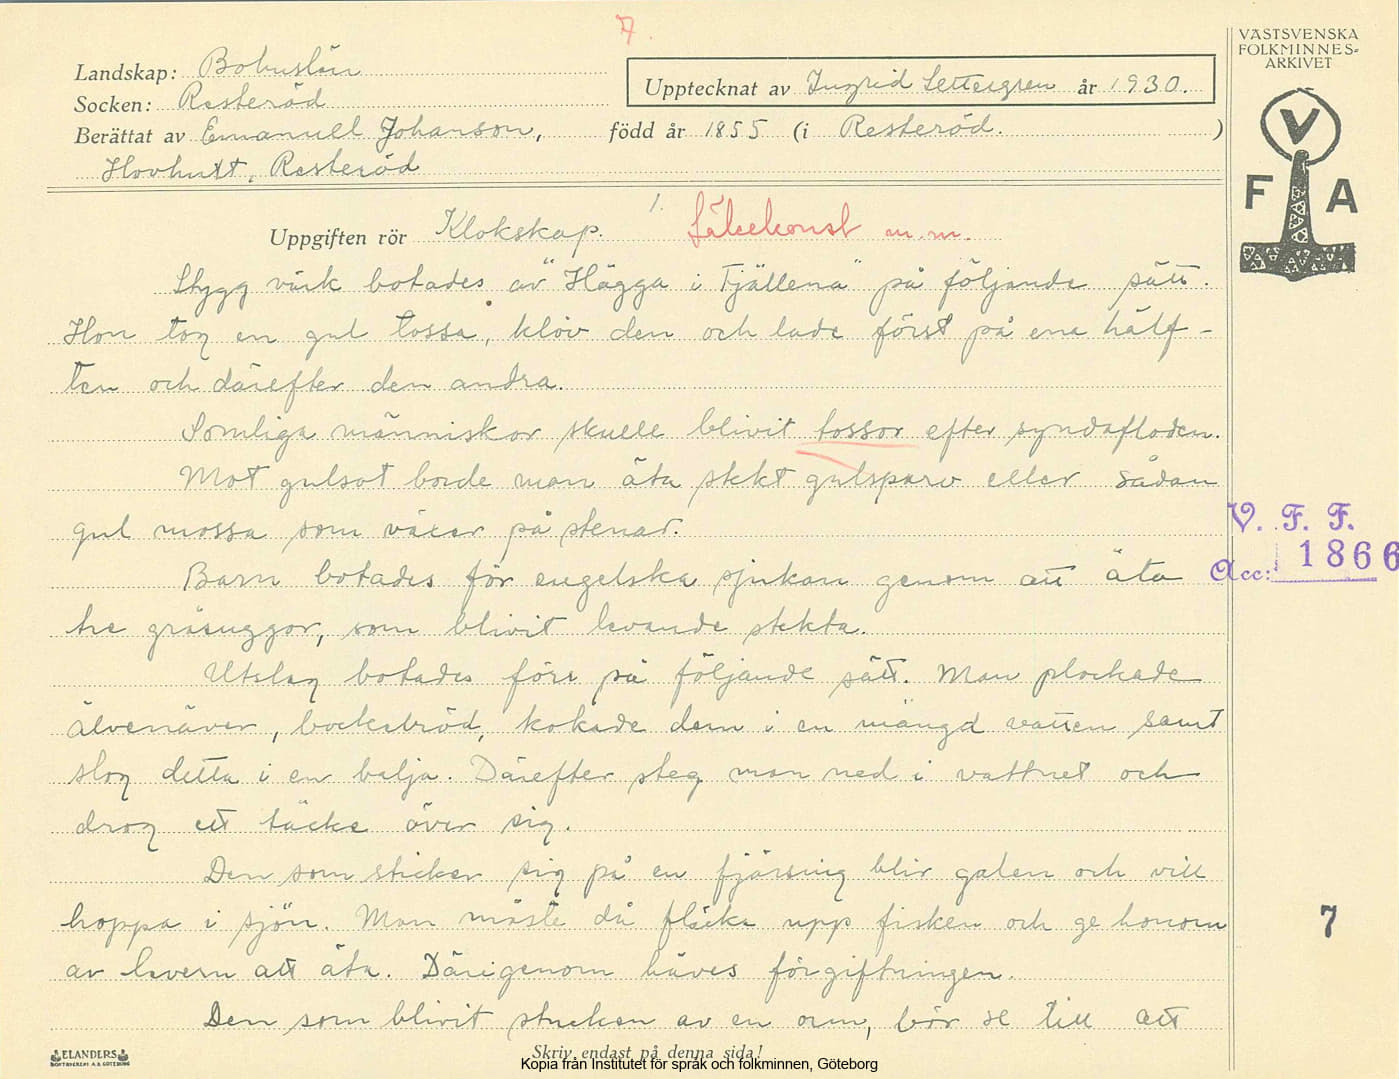 7.
VÄSTSVENSKA
FOLKMINNES-
ARKIVET
Landskap: Bohuslän
Upptecknat av Ingrid Settergren år 1930.
Socken: Resteröd
Berättat av Emanuell Johanson, född år 1855 (i Resteröd. )
Hovhult, Resteröd
V
F A
1.
Uppgiften rör Klokskap. Läkekonst m.m.
Stygg värk botades av "Hägga i Fjällena" på följande sätt.
Hon tog en gul tossa, klöv den och lade först på ena hälf-
ten och därefter den andra.
Somliga människor skulle blivit tossor efter syndafloden.
Mot gulsot borde man äta stekt gulsparv eller sådan
gul mossa som växer på stenar.
V. F. F.
Acc: 1866
Barn botades för engelska sjukan genom att äta
tre gråsuggor, som blivit levande stekta.
Utslag botades förr på följande sätt. Man plockade
älvenäver, bockabröd, kokade dem i en mängd vatten samt
slog detta i en balja. Därefter steg man ned i vattnet och
drog ett täcke över sig.
Den som sticker sig på en fjärsing blir galen och vill
hoppa i sjön. Man måste då fläcka upp fisken och ge honom
7
av levern att äta. Därigenom häves förgiftningen.
Den som blivit stucken av en orm, bör se till att
ELANDERS
BOKTRYCKERI A.B. GÖTEBORG
Skriv endast på denna sida!
Kopia från Institutet för språk och folkminnen, Göteborg